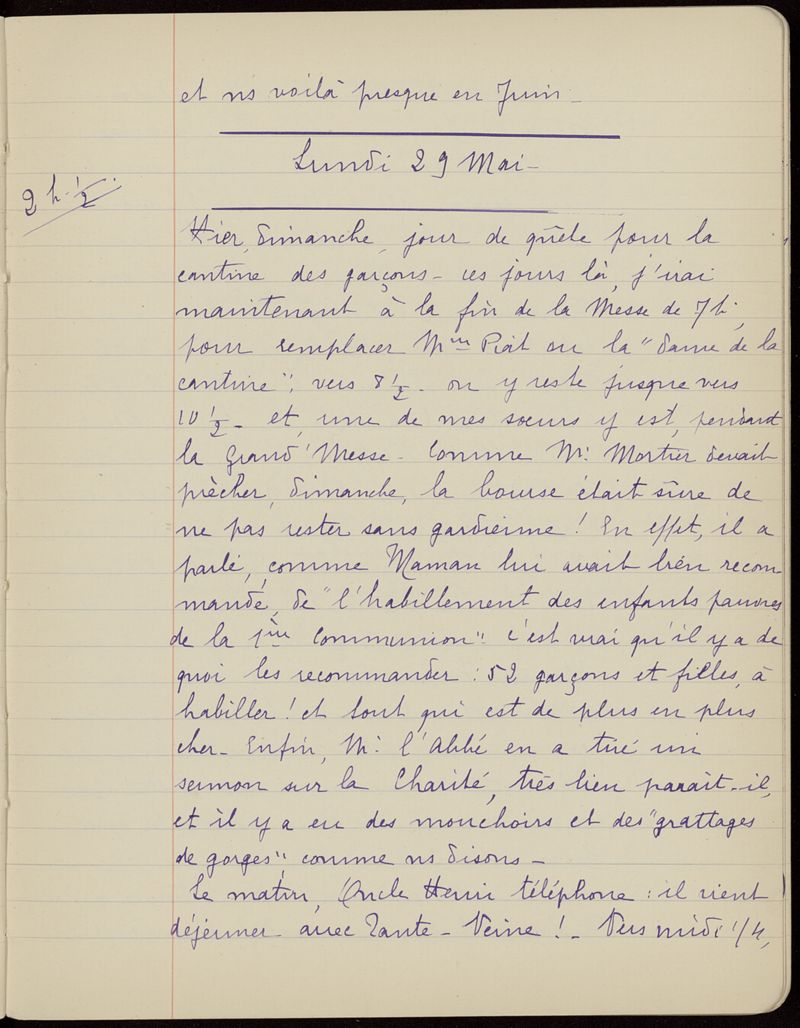 et ns voilà presque en Juin -
Lundi 29 Mai -
2 h. 1/2
Hier, dimanche, jour de quête pour la
cantine des garçons - ces jours là, j'irai
maintenant à la fin de la Messe de 7h,
pour remplacer Mme Piat ou la "dame de la
cantine", vers 8 1/2 - on y reste jusque vers
10 1/2 - et, une de mes soeurs y est, pendant
la Grand'Messe - Comme Mr Mortier devait
prêcher, dimanche, la bourse était sûre de
ne pas rester sans gardienne ! En effet, il a
parlé, comme Maman lui avait bien recom-
mandé, de "l'habillement des enfants pauvres
de la 1ère Communion" : c'est vrai qu'il y a de
quoi les recommander : 52 garçons et filles, à
habiller ! et tout qui est de plus en plus
cher - Enfin, Mr l'Abbé en a tiré un
sermon sur la Charité, très bien paraît-il,
et il y a eu des mouchoirs et des "grattages
de gorges", comme ns disons -
Le matin, Oncle Henri téléphone : il vient
déjeuner avec Tante - Veine ! - Vers midi 1/4,